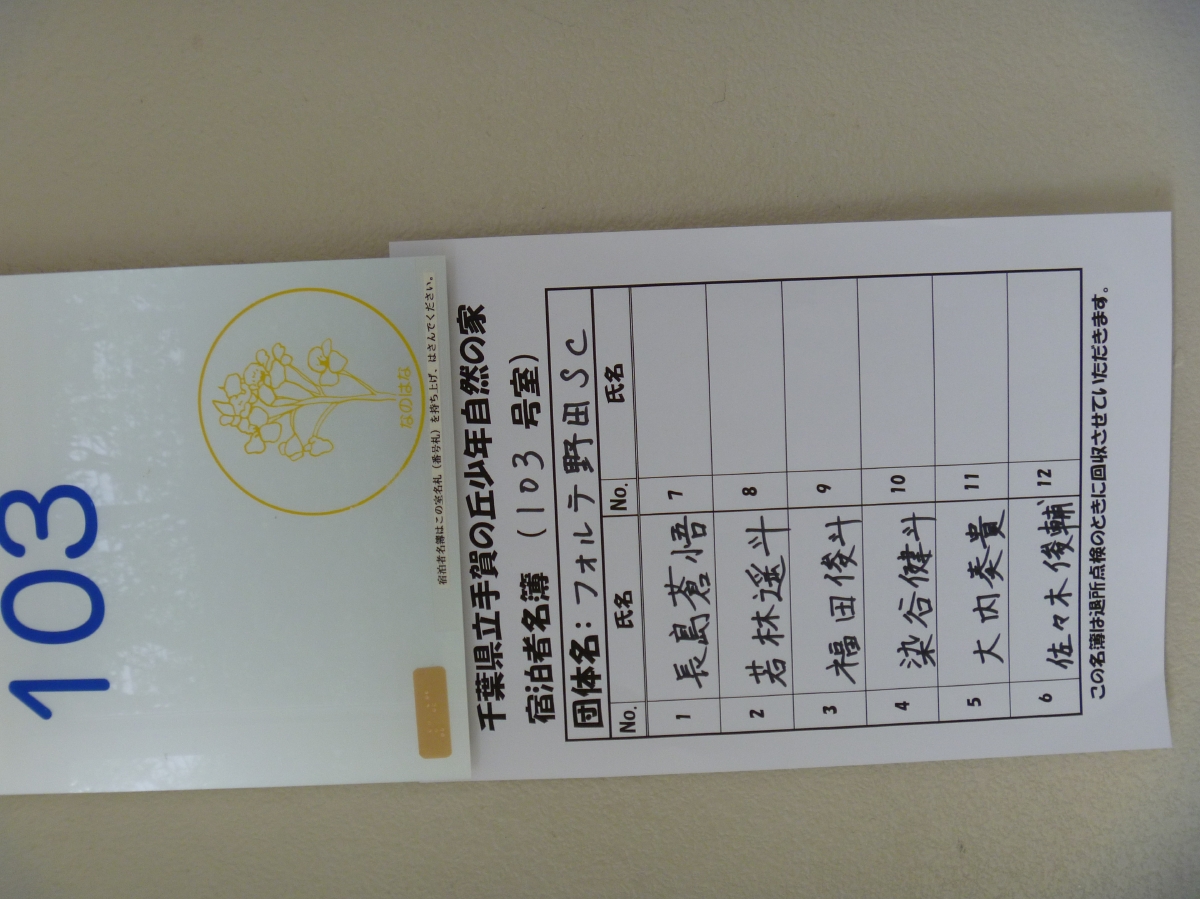 103
なのはな
宿泊者名簿はこの室名札（番号札）を持ち上げ、はさんでください。
千葉県立手賀の丘少年自然の家
宿泊者名簿 （103 号室）
団体名：フォルテ野田SC
No. 氏名 No. 氏名
1 長島蒼悟 7
2 若林遥斗 8
3 福田俊斗 9
4 染谷健斗 10
5 大内奏貴 11
6 佐々木俊輔 12
この名簿は退所点検のときに回収させていただきます。